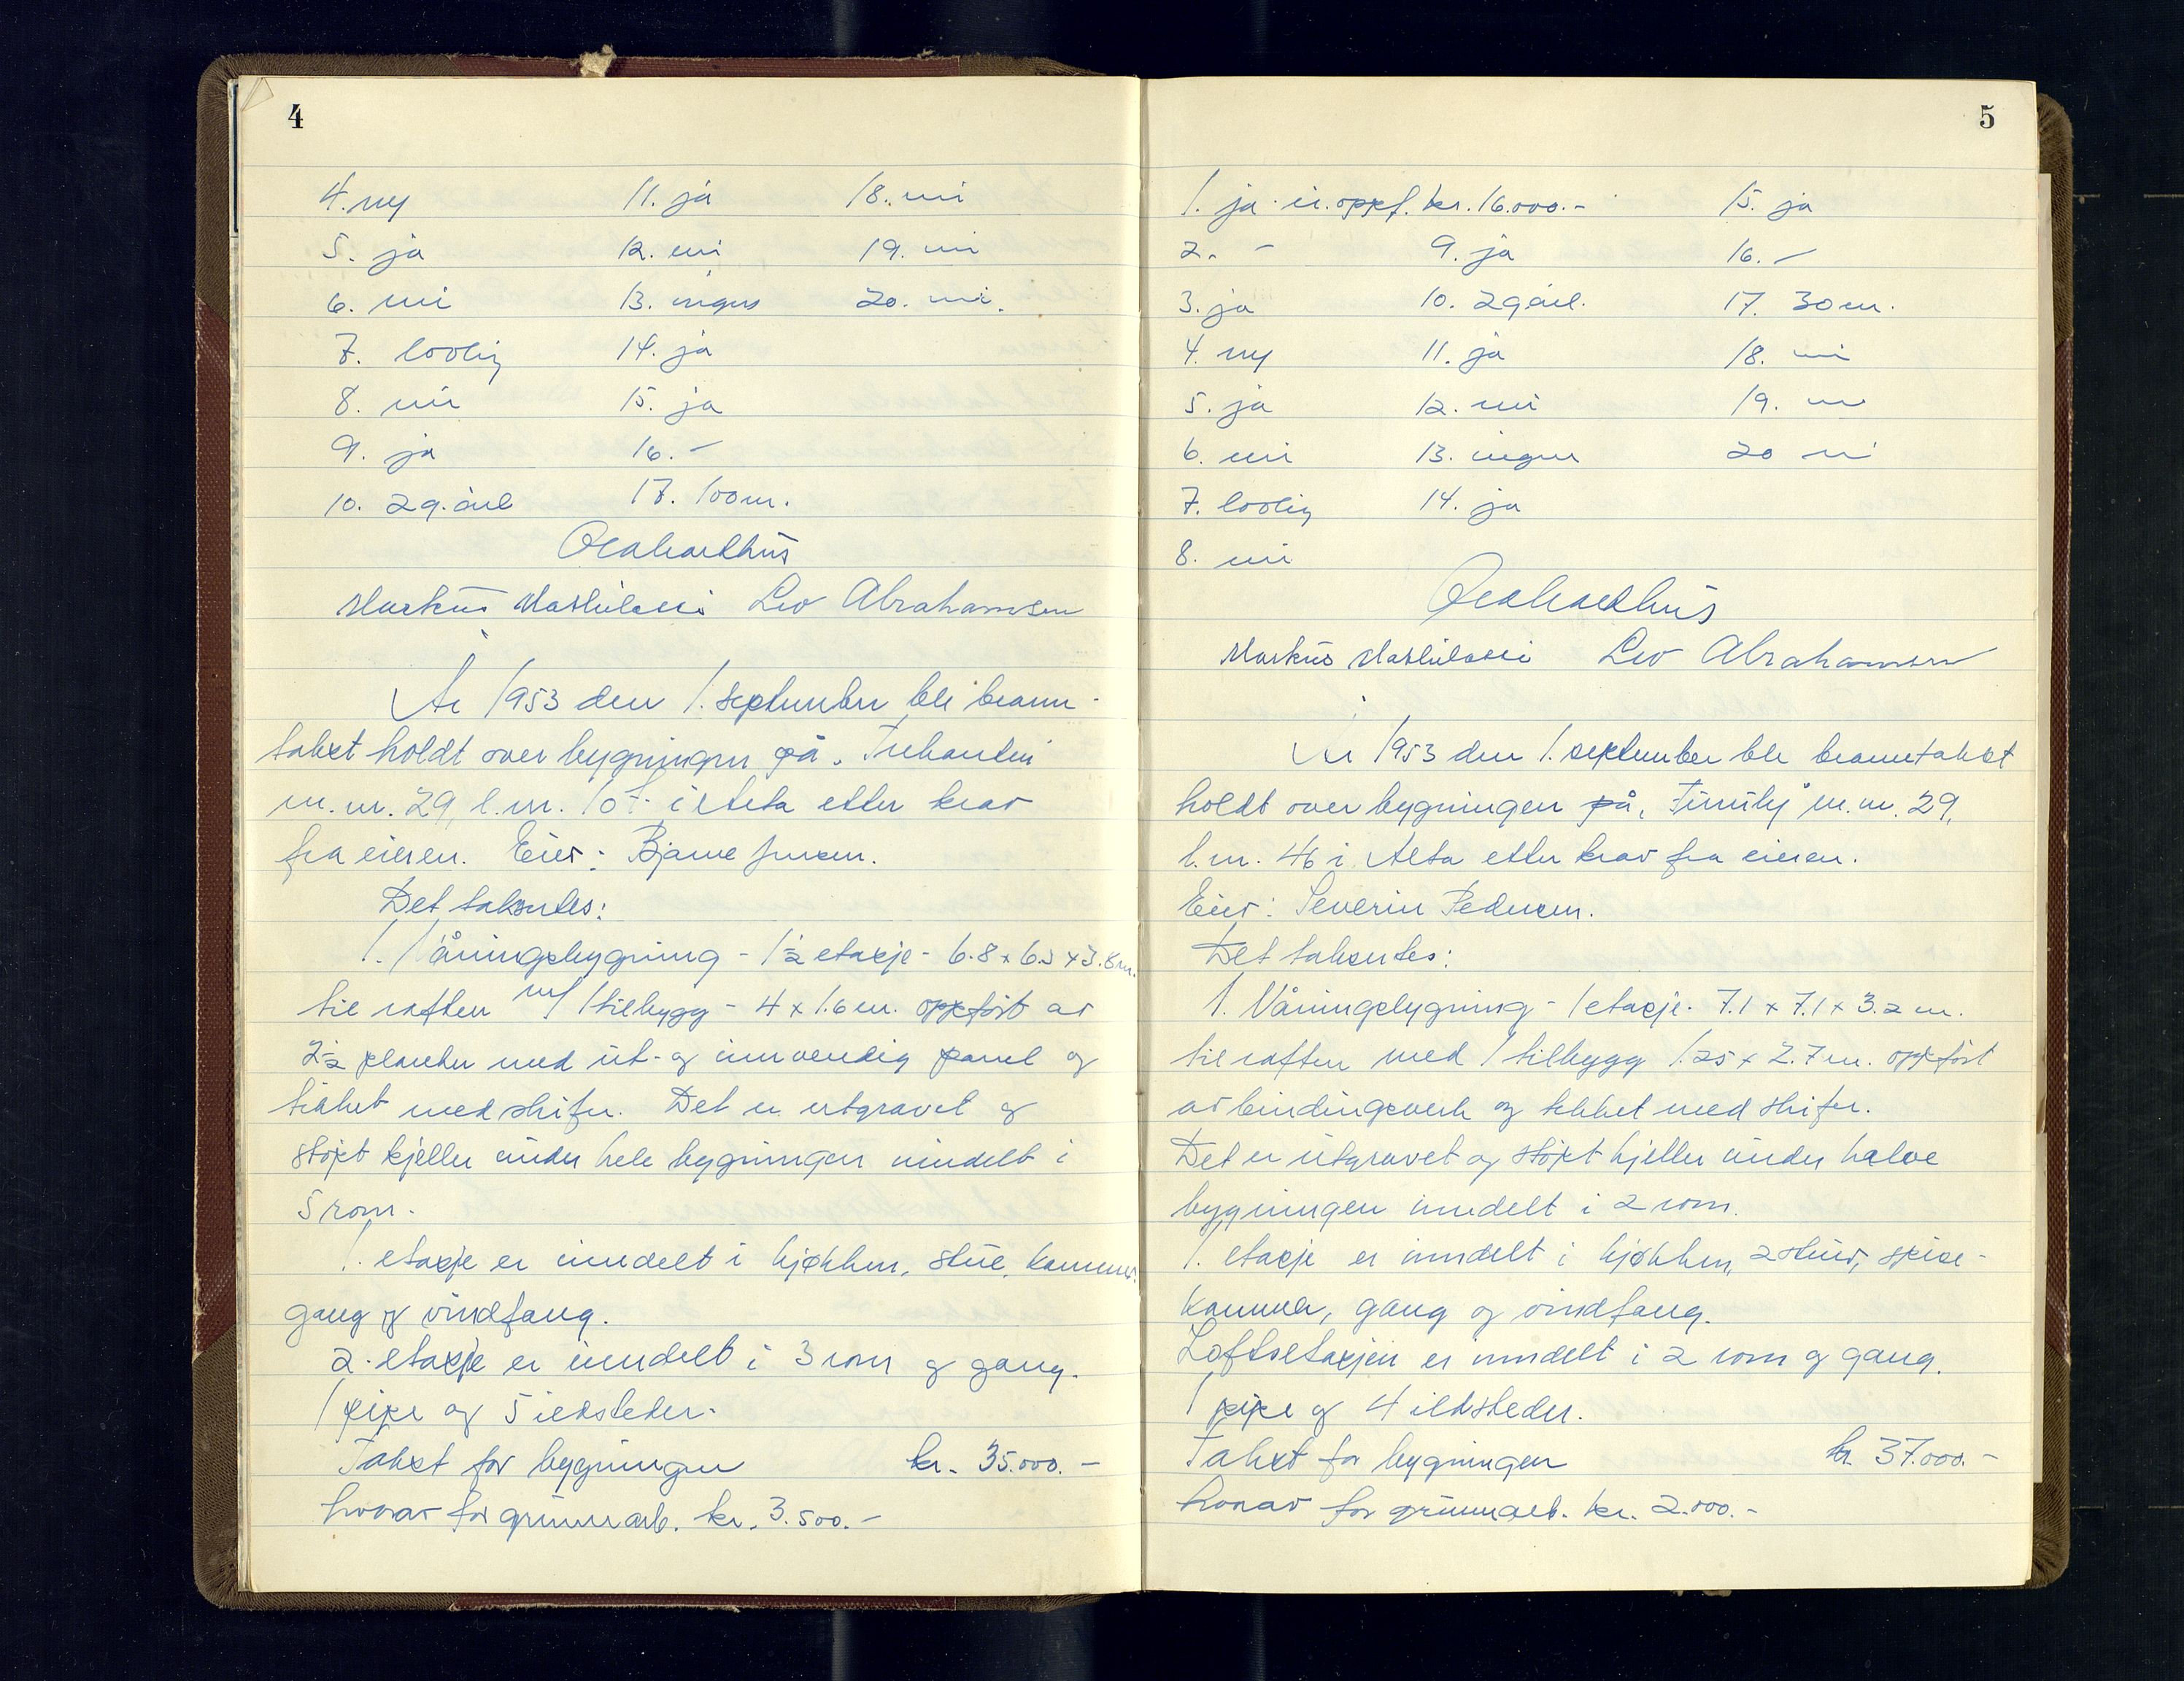 4
4. ny 11. ja 18. nei
5. ja 12. nei 19. nei
6. nei 13. ingen 20. nei.
7. lovlig 14. ja
8. nei 15. ja
9. ja 16. -
10. 29. års 17. 100 m.
Markus Mathilassi Leo Abrahamsen
År 1953 den 1. september ble brann-
takst holdt over bygningen på "Trekanten"
m.nr. 29, l.nr. 107 i Alta etter krav
fra eieren. Eier: Bjarne Jensen.
Det taksertes:
1. Våningsbygning - 1½ etasje - 6.8 x 6.3 x 3.8 m.
til raften m/ 1 tilbygg - 4 x 1.6 m. oppført av
2½ planker med ut- og innvendig panel og
tekket med skifer. Det er utgravet og
støpt kjeller under hele bygningen inndelt i
5 rom.
1. etasje er inndelt i kjøkken, stue, kammer,
gang og vindfang.
2. etasje er inndelt i 3 rom og gang.
1 pipe og 5 ildsteder.
Takst for bygningen kr. 35.000.-
hvorav for grunnarb. kr. 3.500.-
5
1. ja er oppf. kr. 16.000.- 15. ja
2. - 9. ja 16. -
3. ja 10. 29 års 17. 30 m.
4. ny 11. ja 18. nei
5. ja 12. nei 19. nei
6. nei 13. ingen 20 nei
7. lovlig 14. ja
8. nei
Markus Mathilassi Leo Abrahamsen
År 1953 den 1. september ble branntakst
holdt over bygningen på m.nr. 29,
l.nr. 46 i Alta etter krav fra eieren.
Eier: Severin Pedersen.
Det taksertes:
1. Våningsbygning - 1 etasje. 7.1 x 7.1 x 3.2 m.
til raften med 1 tilbygg 1.25 x 2.7 m. oppført
av bindingsverk og tekket med skifer.
Det er utgravet og støpt kjeller under halve
bygningen inndelt i 2 rom.
1. etasje er inndelt i kjøkken, 2 stuer, spise-
kammer, gang og vindfang.
Loftsetasjen er inndelt i 2 rom og gang.
1 pipe og 4 ildsteder.
Takst for bygningen kr. 37.000.-
hvorav for grunnarb. kr. 2.000.-